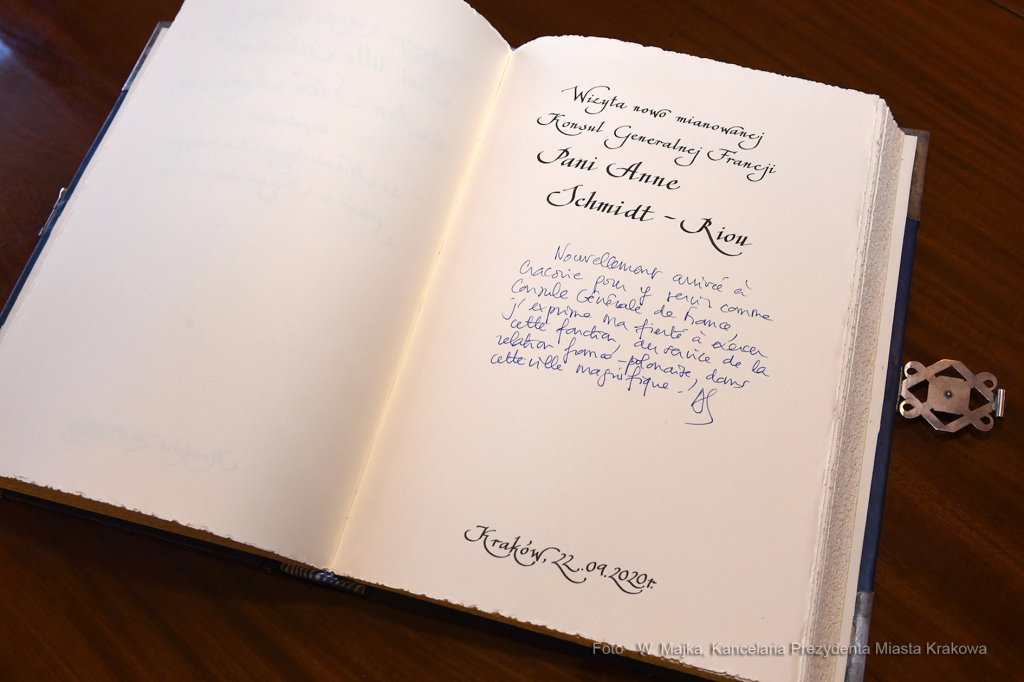 Wizyta nowo mianowanej
Konsul Generalnej Francji
Pani Anne
Schmidt - Riou
Nouvellement arrivée à
Cracovie pour y servir comme
Consule Générale de France,
j'exprime ma fierté à exercer
cette fonction, au service de la
relation franco-polonaise, dans
cette ville magnifique. AS
Kraków, 22.09.2020r.
Foto : W. Majka, Kancelaria Prezydenta Miasta Krakowa